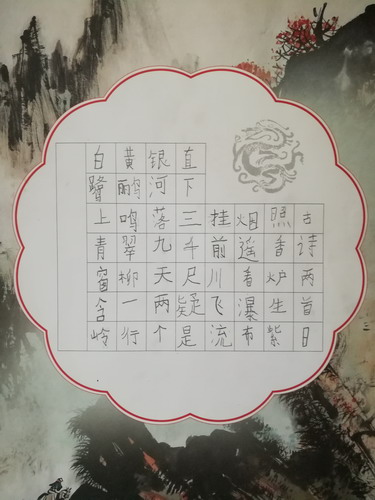 古诗两首日
照香炉生紫
烟遥看瀑布
挂前川飞流
直下三千尺疑是
银河落九天两个
黄鹂鸣翠柳一行
白鹭上青窗含岭